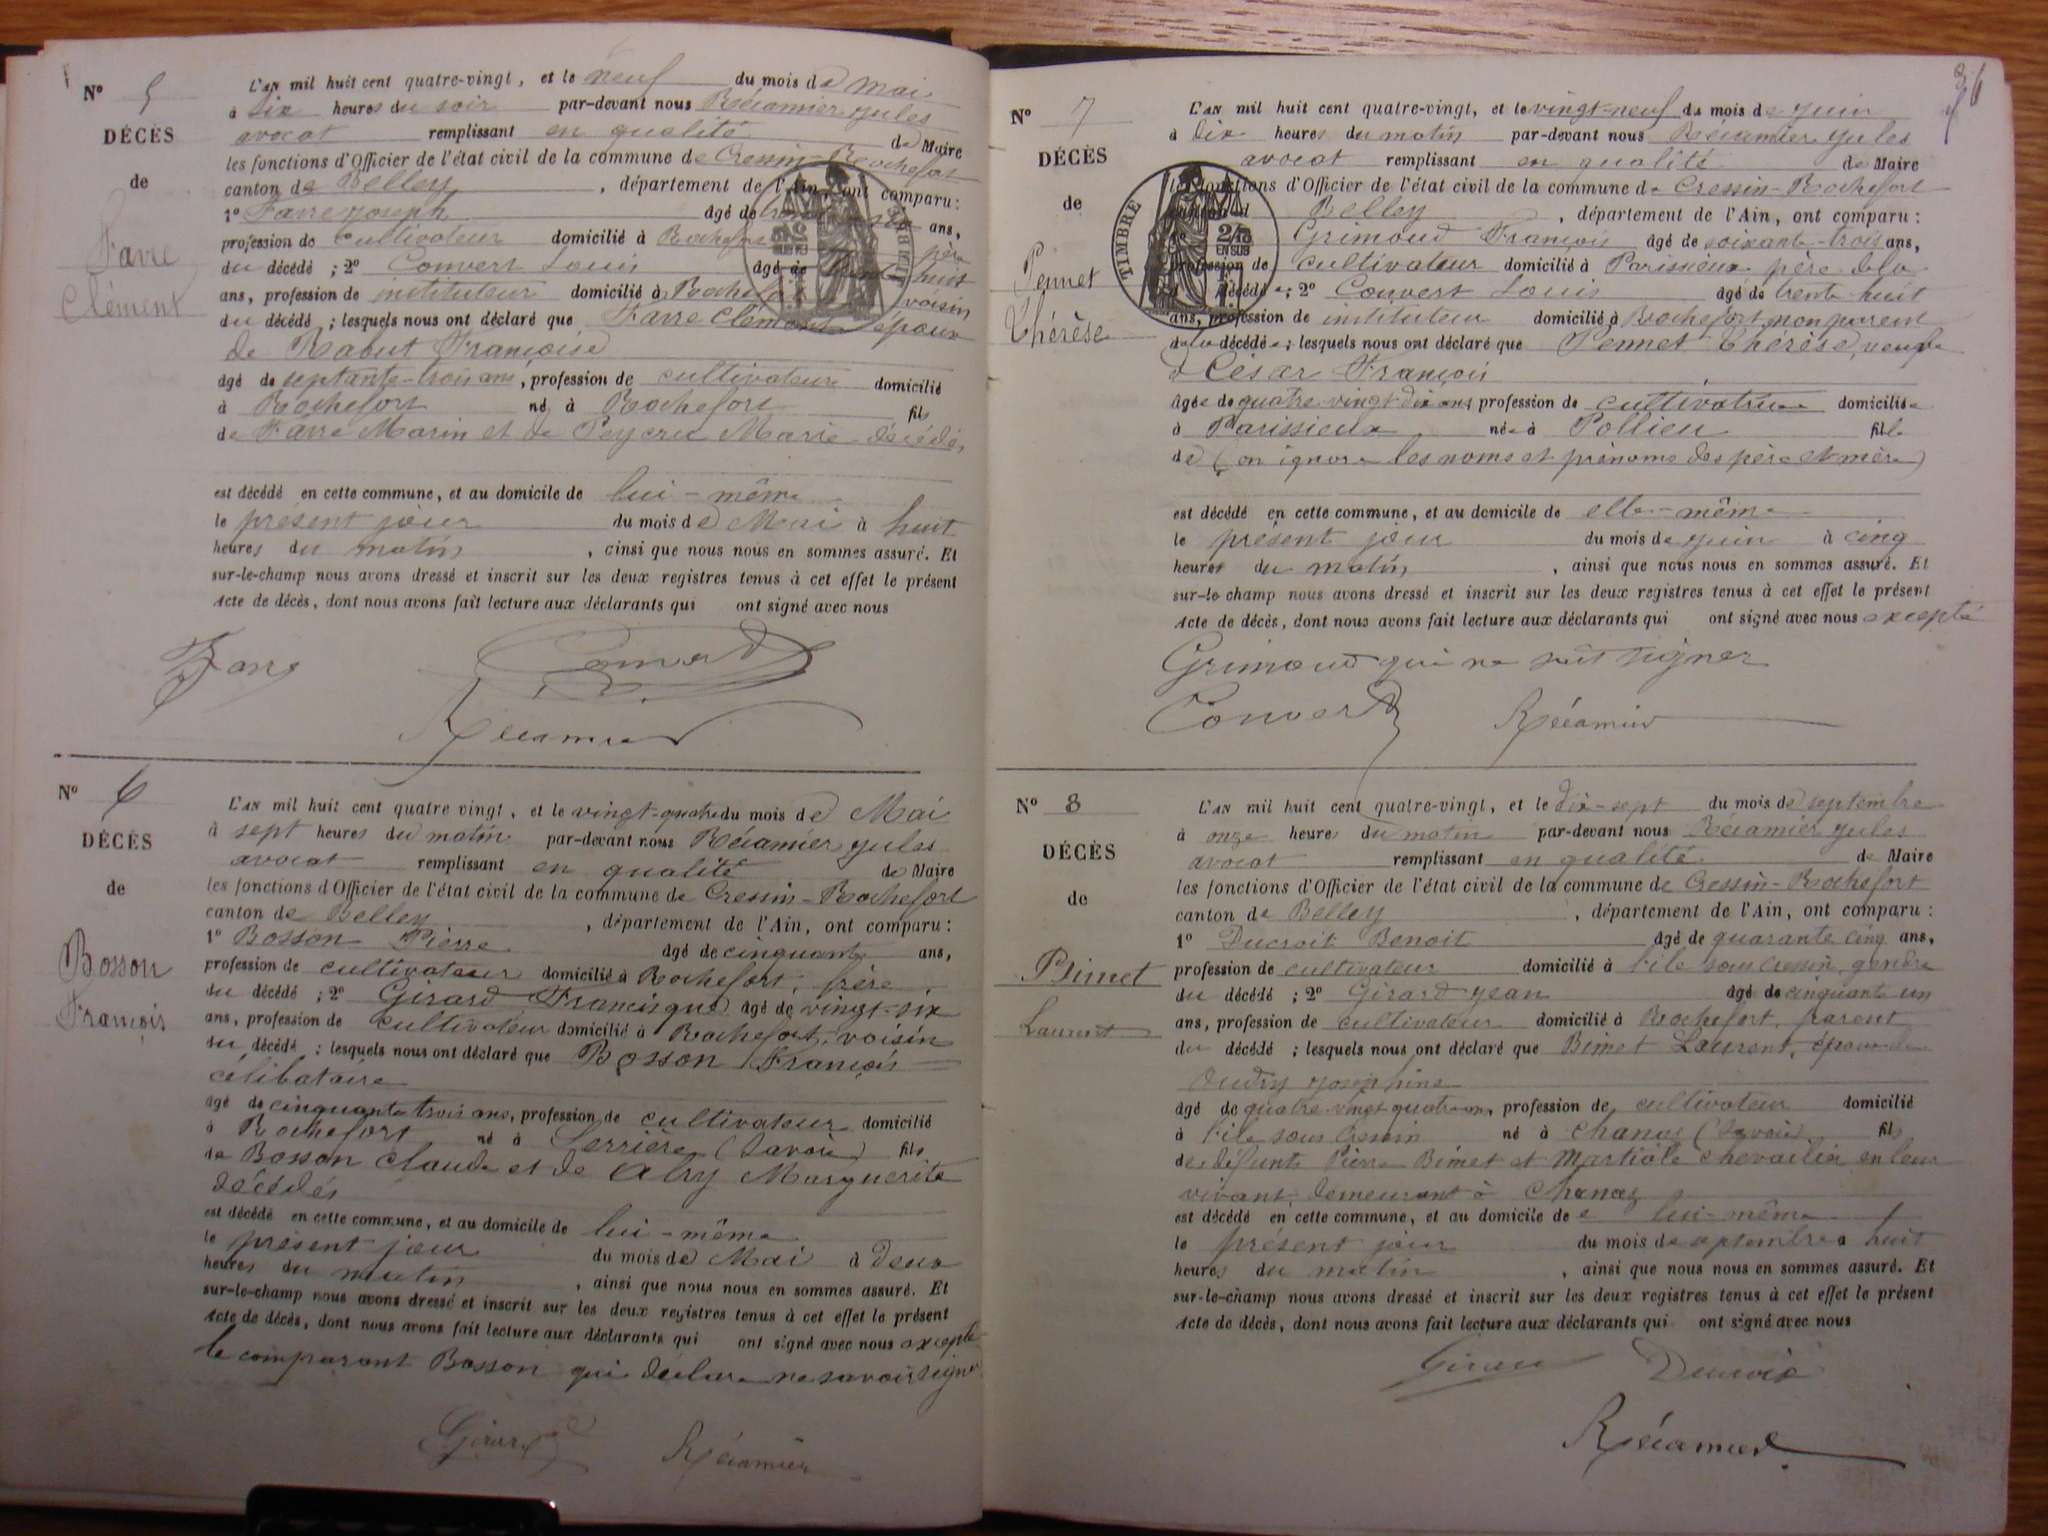 Nº 5
DÉCÈS
de
Favre
Clément
L'AN mil huit cent quatre-vingt, et le neuf du mois de Mai
à six heures du soir par-devant nous Récamier Jules
avocat remplissant en qualité de Maire
les fonctions d'Officier de l'état civil de la commune de Cressin-Rochefort
canton de Belley, département de l'Ain, ont comparu:
1º Favre Joseph âgé de ans,
profession de cultivateur domicilié à père
du décédé ; 2º Convert Louis âgé de huit
ans, profession de instituteur domicilié à voisin
du décédé ; lesquels nous ont déclaré que Favre Clément époux
de Rabut Françoise
âgé de septante-trois ans, profession de cultivateur domicilié
à Rochefort né à Rochefort fils
de Favre Marin et de Marie décédés
est décédé en cette commune, et au domicile de lui-même
le présent jour du mois de Mai à huit
heures du matin, ainsi que nous nous en sommes assuré. Et
sur-le-champ nous avons dressé et inscrit sur les deux registres tenus à cet effet le présent
Acte de décès, dont nous avons fait lecture aux déclarants qui ont signé avec nous
Favre Convert
Récamier
Nº 6
DÉCÈS
de
Bosson
François
L'AN mil huit cent quatre vingt, et le vingt-quatre du mois de Mai
à sept heures du matin par-devant nous Récamier Jules
avocat remplissant en qualité de Maire
les fonctions d'Officier de l'état civil de la commune de Cressin-Rochefort
canton de Belley, département de l'Ain, ont comparu:
1º Bosson Pierre âgé de cinquante ans,
profession de cultivateur domicilié à Rochefort, frère
du décédé ; 2º Girard Francisque âgé de vingt-six
ans, profession de cultivateur domicilié à Rochefort, voisin
du décédé ; lesquels nous ont déclaré que Bosson François
célibataire
âgé de cinquante trois ans, profession de cultivateur domicilié
à Rochefort né à Serrière (Savoie) fils
de Bosson Claude et de Alry Marguerite
décédés
est décédé en cette commune, et au domicile de lui-même
le présent jour du mois de Mai à deux
heures du matin, ainsi que nous nous en sommes assuré. Et
sur-le-champ nous avons dressé et inscrit sur les deux registres tenus à cet effet le présent
Acte de décès, dont nous avons fait lecture aux déclarants qui ont signé avec nous excepté
le comparant Bosson qui déclare ne savoir signer
Girard Récamier
Nº 7
DÉCÈS
de
Pennet
Thérèse
TIMBRE
L'AN mil huit cent quatre-vingt, et le vingt-neuf du mois de Juin
à dix heures du matin par-devant nous Récamier Jules
avocat remplissant en qualité de Maire
les fonctions d'Officier de l'état civil de la commune de Cressin-Rochefort
canton de Belley, département de l'Ain, ont comparu:
Grimoud François âgé de soixante-trois ans,
profession de cultivateur domicilié à Parissieux père de la
décédée ; 2º Convert Louis âgé de trente-huit
ans, profession de instituteur domicilié à Rochefort, non parent
de la décédée ; lesquels nous ont déclaré que Pennet Thérèse, veuve
de César François
âgée de quatre-vingt-dix ans, profession de cultivatrice domiciliée
à Parissieux née à Pollieu fille
de (on ignore les noms et prénoms des père et mère)
est décédé en cette commune, et au domicile de elle-même
le présent jour du mois de Juin à cinq
heures du matin, ainsi que nous nous en sommes assuré. Et
sur-le champ nous avons dressé et inscrit sur les deux registres tenus à cet effet le présent
Acte de décès, dont nous avons fait lecture aux déclarants qui ont signé avec nous excepté
Grimoud qui ne sait signer
Convert Récamier
Nº 8
DÉCÈS
de
Bimet
Laurent
L'AN mil huit cent quatre-vingt, et le dix-sept du mois de septembre
à onze heures du matin par-devant nous Récamier Jules
avocat remplissant en qualité de Maire
les fonctions d'Officier de l'état civil de la commune de Cressin-Rochefort
canton de Belley, département de l'Ain, ont comparu:
1º Ducroit Benoit âgé de quarante cinq ans,
profession de cultivateur domicilié à l'île sous Cressin, gendre
du décédé ; 2º Girard Jean âgé de cinquante un
ans, profession de cultivateur domicilié à Rochefort, parent
du décédé ; lesquels nous ont déclaré que Bimet Laurent, époux de
Joséphine
âgé de quatre-vingt-quatre ans, profession de cultivateur domicilié
à l'île sous Cressin né à Chanaz (Savoie) fils
de défunts Pierre Bimet et Martiale Chevailier en leur
vivant, demeurant à Chanaz
est décédé en cette commune, et au domicile de lui-même
le présent jour du mois de septembre à huit
heures du matin, ainsi que nous nous en sommes assuré. Et
sur-le-champ nous avons dressé et inscrit sur les deux registres tenus à cet effet le présent
Acte de décès, dont nous avons fait lecture aux déclarants qui ont signé avec nous
Girard Ducroit
Récamier